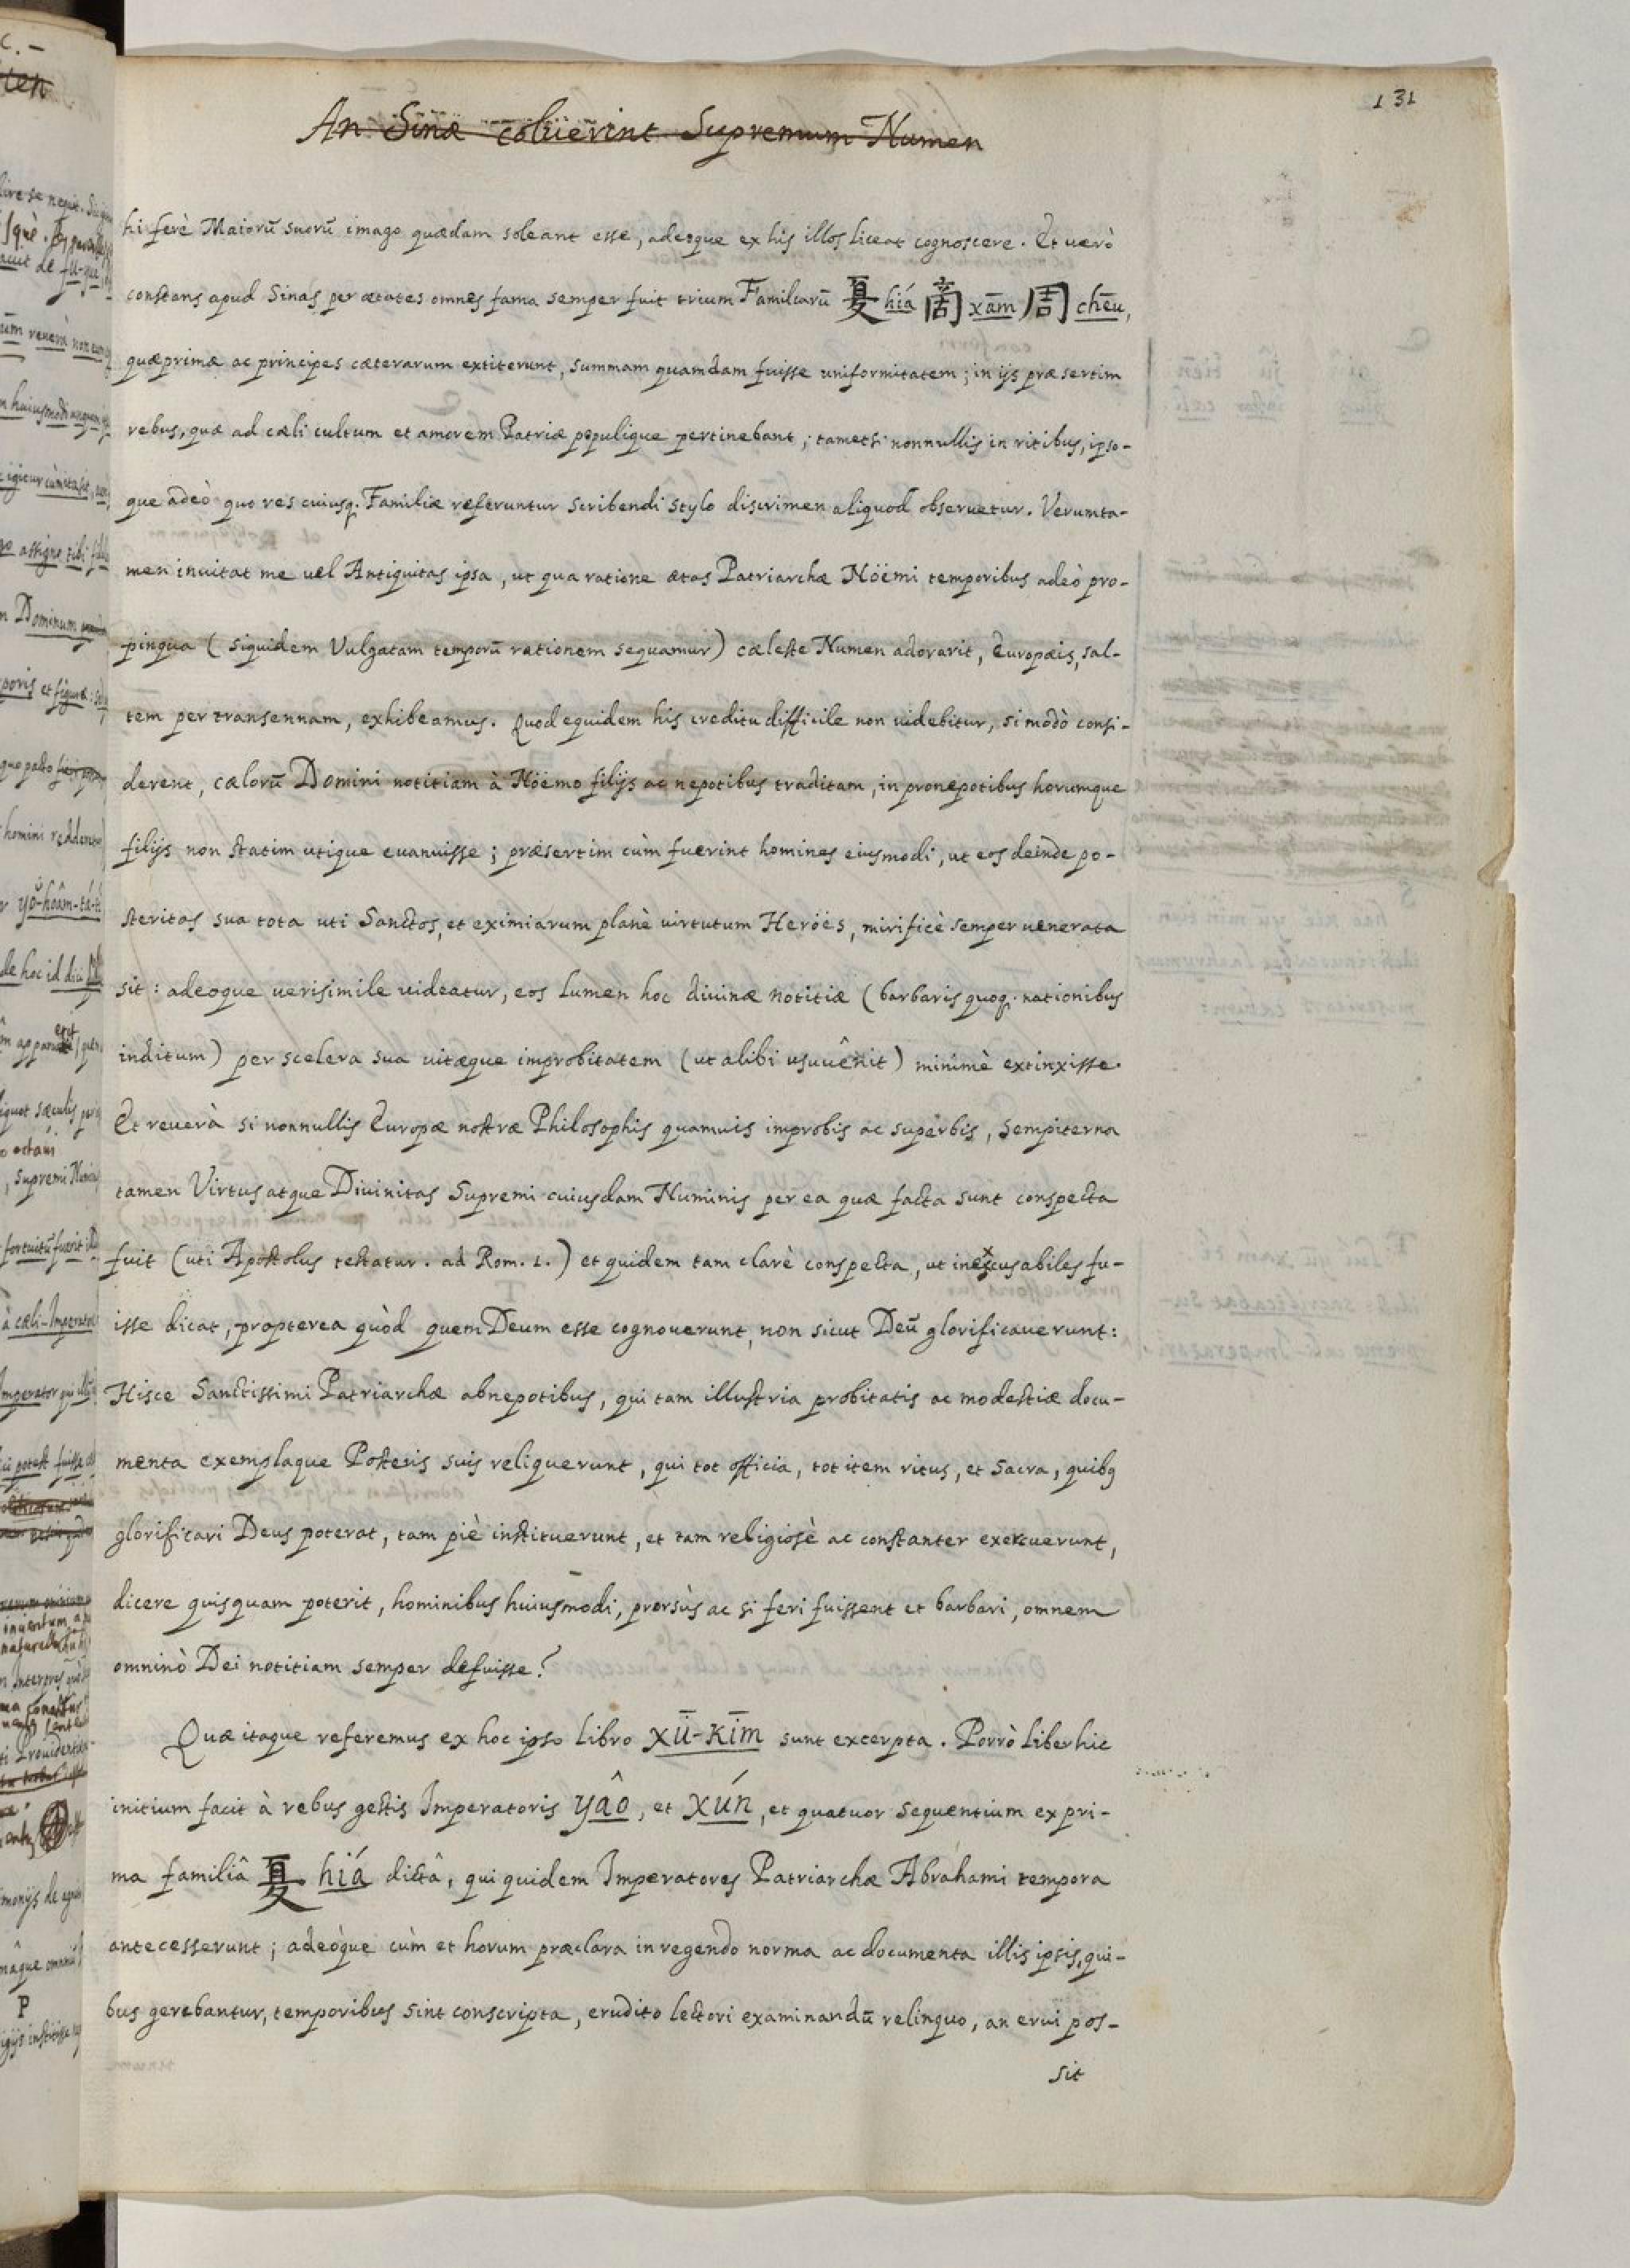 131
An Sinæ coluerint Supremum Numen
hi ferè Maiorū suorū imago quædam soleant esse, adeoque ex his illos liceat cognoscere. Et uerò
constans apud Sinas per ætates omnes fama semper fuit trium Familiarū 夏 hiá 商 xām 周 chēu,
quæ primæ ac principes cæterarum extiterunt, summam quamdam fuisse uniformitatem; in ijs præsertim
rebus, quæ ad cæli cultum et amorem Patriæ populique pertinebant; tametsi nonnullis in ritibus, ipso-
que adeò quo res cuiusq. Familiæ referuntur scribendi stylo discrimen aliquod obseruetur. Verumta-
men inuitat me uel Antiquitas ipsa, ut qua ratione ætas Patriarchæ Nöëmi temporibus adeò pro-
pinqua (siquidem Vulgatam temporū rationem sequamur) cæleste Numen adorarit, Europæis, sal-
tem per transennam, exhibeamus. Quod equidem his creditu difficile non uidebitur, si modò consi-
derent, cælorū Domini notitiam à Nöëmo filijs ac nepotibus traditam, in pronepotibus horumque
filijs non statim utique euanuisse; præsertim cùm fuerint homines eiusmodi, ut eos deinde po-
steritas sua tota uti Sanctos, et eximiarum planè uirtutum Heröes, mirificè semper uenerata
sit: adeoque uerisimile uideatur, eos lumen hoc diuinæ notitiæ (barbaris quoq. nationibus
inditum) per scelera sua uitæque improbitatem (ut alibi usuuênit) minimè extinxisse.
Et reuerà si nonnullis Europæ nostræ Philosophis quamuis improbis ac superbis, sempiterna
tamen Virtus atque Diuinitas Supremi cuiusdam Numinis per ea quæ facta sunt conspecta
fuit (uti Apostolus testatur. ad Rom. 1.) et quidem tam clarè conspecta, ut inexcusabiles fu-
isse dicat, propterea quòd quem Deum esse cognouerunt, non sicut Deū glorificauerunt:
Hisce Sanctissimi Patriarchæ abnepotibus, qui tam illustria probitatis ac modestiæ docu-
menta exemplaque Posteris suis reliquerunt, qui tot officia, tot item ritus, et sacra, quibq
glorificari Deus poterat, tam piè instituerunt, et tam religiosè ac constanter exercuerunt,
dicere quisquam poterit, hominibus huiusmodi, prorsùs ac si feri fuissent et barbari, omnem
omninò Dei notitiam semper defuisse?
Quæ itaque referemus ex hoc ipso libro xū-kīm sunt excerpta. Porrò liber hic
initium facit à rebus gestis Imperatoris yâo, et xún, et quatuor sequentium ex pri-
ma familiâ 夏 hiá dictâ, qui quidem Imperatores Patriarchæ Abrahami tempora
antecesserunt; adeòque cùm et horum præclara in regendo norma ac documenta illis ipsis, qui-
bus gerebantur, temporibus sint conscripta, erudito lectori examinandū relinquo, an erui pos-
sit